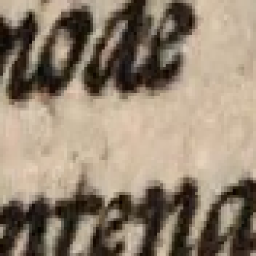 mode
ntena